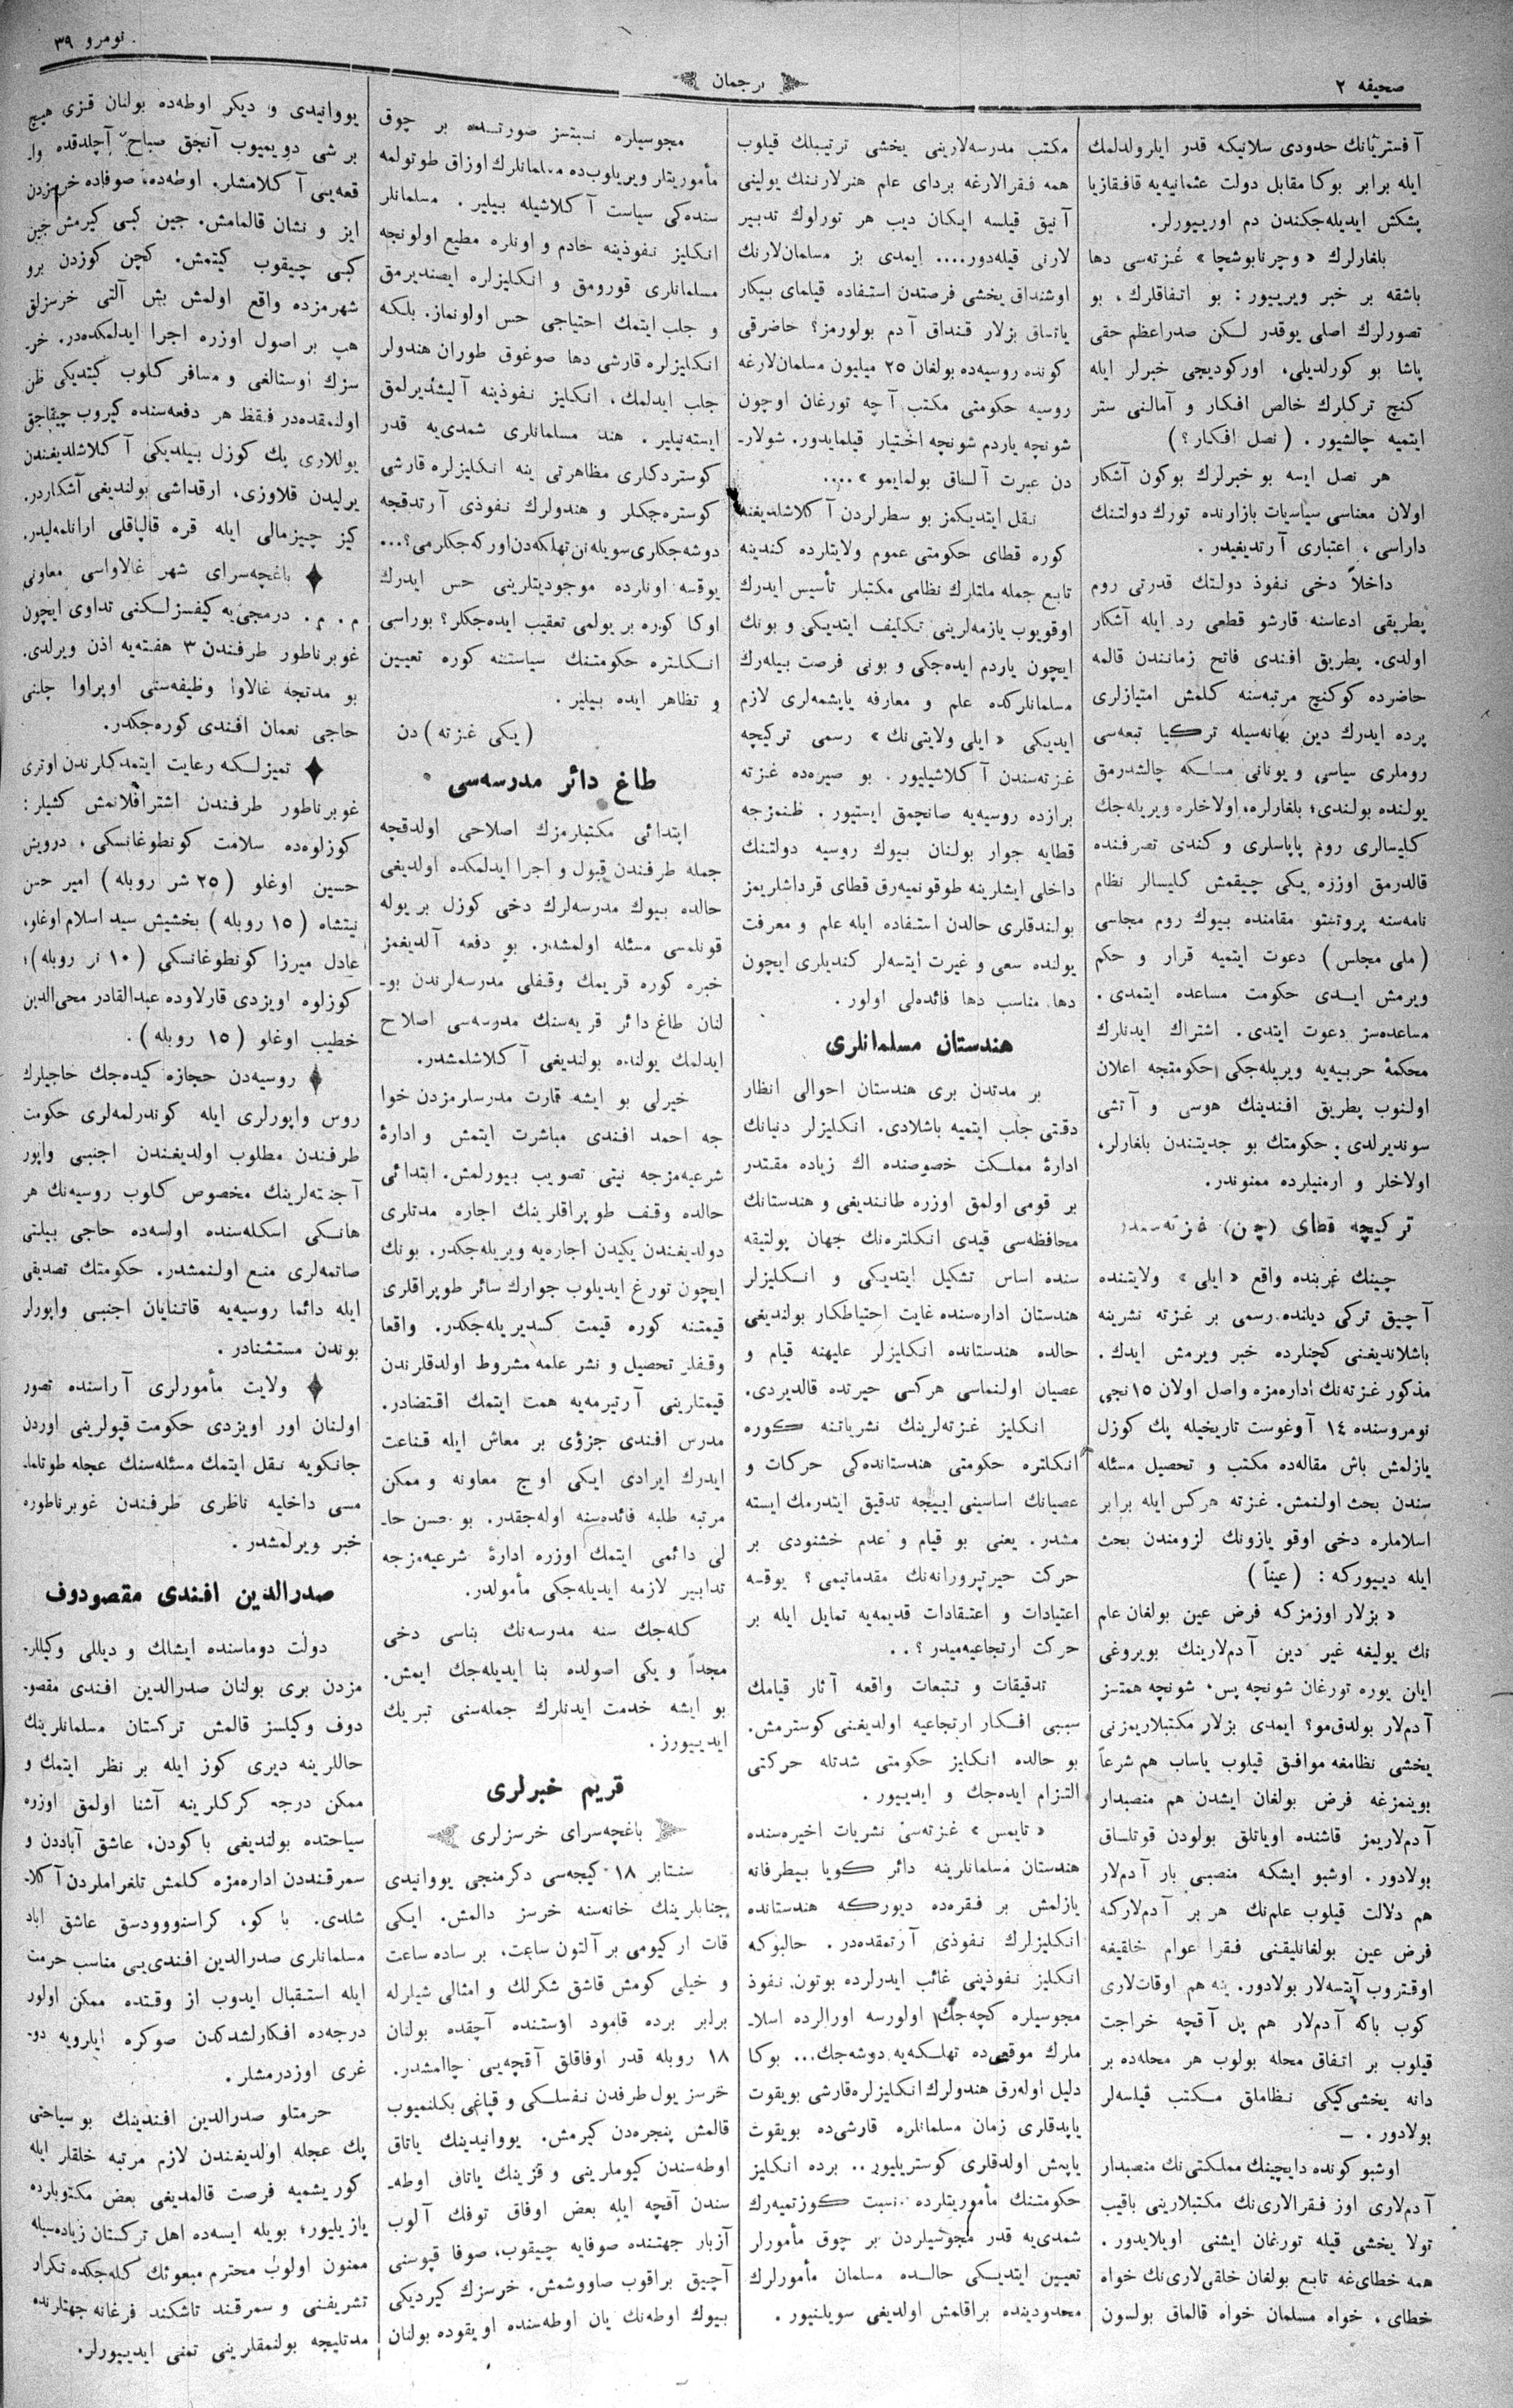 صحیفه ۲
ترجمان
نومرو ۳۹
آفستریانك حدودی سلانیكه قدر ایلرولدلمك
ایله برابر بوكا مقابل دولت عثمانیه‌یه قافقازیا
پشكش ایدیله‌جكندن دم اورییورلر.
بلغارلرك « وچرنابوشچا » غزته‌سی دها
باشقه بر خبر ویرییور: بو اتفاقلرك، بو
تصورلرك اصلی یوقدر لكن صدراعظم حقی
پاشا بو كورلدیلی، اوركودیجی خبرلر ایله
كنج تركلرك خالص افكار و آمالنی ستر
ایتمیه چالشیور. (نصل افكار؟)
هر نصل ایسه بو خبرلرك بوكون آشكار
اولان معناسی سیاسیات بازارنده تورك دولتنك
داراسی، اعتباری آرتدیغیدر.
داخلاً دخی نفوذ دولتك قدرتی روم
پطریقی ادعاسنه قارشو قطعی رد ایله آشكار
اولدی. پطریق افندی فاتح زمانندن قالمه
حاضرده كوكنج مرتبه‌سنه كلمش امتیازلری
پرده ایدرك دین بهانه‌سیله تركیا تبعه‌سی
روملری سیاسی و یونانی مسلكه چالشدرمق
یولنده بولندی؛ بلغارلره، اولاخلره ویریله‌جك
كلیسالری روم پاپاسلری و كندی تصرفنده
قالدرمق اوززه یكی چیقمش كلیسالر نظام
نامه‌سنه پروتستو مقامنده بیوك روم مجلسی
(ملی مجلس) دعوت ایتمیه قرار و حكم
ویرمش ایدی حكومت مساعده ایتمدی.
مساعده‌سز دعوت ایتدی. اشتراك ایدنلرك
محكمهٔ حربیه‌یه ویریله‌جكی حكومتجه اعلان
اولنوب پطریق افندینك هوسی و آتشی
سوندیرلدی. حكومتك بو جدیتندن بلغارلر،
اولاخلر و ارمنیلرده ممنوندر.
تركیچه قطای (چن) غزته‌سمدر
چینك غربنده واقع « ایلی » ولایتنده
آچیق تركی دیلنده رسمی بر غزته نشرینه
باشلاندیغنی كچنلرده خبر ویرمش ایدك.
مذكور غزته‌نك اداره‌مزه واصل اولان ۱۵نجی
نومروسنده ۱٤ آوغوست تاریخیله پك كوزل
یازلمش باش مقاله‌ده مكتب و تحصیل مسئله
سندن بحث اولنمش. غزته هركس ایله برابر
اسلاملره دخی اوقو یازونك لزومندن بحث
ایله دییوركه: (عیناً)
« بزلار اوزمزكه فرض عین بولغان عام
نك یولیغه غیر دین آدم‌لارینك بویروغی
ایان یوره تورغان شونچه پس، شونچه همتسز
آدم‌لار بولدق‌مو؟ ایمدی بزلار مكتبلاریمزنی
یخشی نظامغه موافق قیلوب یاساب هم شرعاً
بوینمزغه فرض بولغان ایشدن هم منصبدار
آدم‌لاریمز قاشنده اویاتلق بولودن قوتلساق
بولادور. اوشبو ایشكه منصبی بار آدم‌لار
هم دلالت قیلوب علم‌نك هر بر آدم‌لاركه
فرض عین بولغانلیقنی فقرا عوام خلقیغه
اوقتروب آیتسه‌لار بولادور. ینه هم اوقات‌لاری
كوب باكه آدم‌لار هم پل آقچه خراجت
قیلوب بر اتفاق محله بولوب هر محله‌ده بر
دانه یخشی‌كیكی نظاملق مكتب قیلسه‌لر
بولادور. ـ
اوشبو كونده دایچینك مملكتی‌نك منصبدار
آدم‌لاری اوز فقرالاری‌نك مكتبلارینی باقیب
تولا یخشی قیله تورغان ایشنی اویلایدور.
همه خطای‌غه تابع بولغان خلقی‌لاری‌نك خواه
خطای، خواه مسلمان خواه قالماق بولسون
مكتب مدرسه‌لارینی یخشی ترتیبلك قیلوب
همه فقرالارغه بردای علم هنرلارننك یولینی
آنیق قیلسه ایكان دیب هر تورلوك تدبیر
لارنی قیله‌دور.... ایمدی بز مسلمان‌لارنك
اوشنداق یخشی فرصتدن استفاده قیلمای بیكار
یاتساق بزلار قنداق آدم بولورمز؟ حاضرقی
كونده روسیه‌ده بولغان ۲۵ میلیون مسلمان‌لارغه
روسیه حكومتی مكتب آچه تورغان اوچون
شونچه یاردم شونچه اختیار قیلمایدور. شولار-
دن عبرت آلساق بولمایمو »....
نقل ایتدیكمز بو سطرلردن آكلاشلدیغنه
كوره قطای حكومتی عموم ولایتلرده كندینه
تابع جمله ملتلرك نظامی مكتبلر تأسیس ایدرك
اوقویوب یازمه‌لرینی تكلیف ایتدیكی و بونك
ایچون یاردم ایده‌جكی و بونی فرصت بیله‌رك
مسلمانلركده علم و معارفه یاپشمه‌لری لازم
ایدیكی « ایلی ولایتی‌نك » رسمی تركیچه
غزته‌سندن آكلاشیلیور. بو صیره‌ده غزته
برازده روسیه‌یه صانچمق ایستیور. ظنمزجه
قطایه جوار بولنان بیوك روسیه دولتنك
داخلی ایشلرینه طوقونمیه‌رق قطای قرداشلریمز
بولندقلری حالدن استفاده ایله علم و معرفت
یولنده سعی و غیرت ایتسه‌لر كندیلری ایچون
دها مناسب دها فائده‌لی اولور.
هندستان مسلمانلری
بر مدتدن بری هندستان احوالی انظار
دقتی جلب ایتمیه باشلادی. انكلیزلر دنیانك
ادارهٔ مملكت خصوصنده اك زیاده مقتدر
بر قومی اولمق اوزره طانندیغی و هندستانك
محافظه‌سی قیدی انكلتره‌نك جهان پولتیقه
سنده اساس تشكیل ایتدیكی و انكلیزلر
هندستان اداره‌سنده غایت احتیاطكار بولندیغی
حالده هندستانده انكلیزلر علیهنه قیام و
عصیان اولنماسی هركسی حیرتده قالدیردی.
انكلیز غزته‌لرینك نشریاتنه كوره
انكلتره حكومتی هندستانده‌كی حركات و
عصیانك اساسینی اییجه تدقیق ایتدرمك ایسته
مشدر. یعنی بو قیام و عدم خشنودی بر
حركت حیرتپرورانه‌نك مقدماتیمی؟ یوقسه
اعتیادات و اعتقادات قدیمه‌یه تمایل ایله بر
حركت ارتجاعیه‌میدر؟..
تدقیقات و تتبعات واقعه آثار قیامك
سببی افكار ارتجاعیه اولدیغنی كوسترمش.
بو حالده انكلیز حكومتی شدتله حركتی
التزام ایده‌جك و ایدییور.
« تایمس » غزته‌سی نشریات اخیره‌سنده
هندستان مسلمانلرینه دائر كویا بیطرفانه
یازلمش بر فقره‌ده دیوركه هندستانده
انكلیزلرك نفوذی آرتمقده‌در. حالبوكه
انكلیز نفوذینی غائب ایدرلرده بوتون نفوذ
مجوسیلره كچه‌جك اولورسه اورالرده اسلا-
ملرك موقعی‌ده تهلكه‌یه دوشه‌جك... بوكا
دلیل اوله‌رق هندولرك انكلیزلره‌قارشی بویقوت
یاپدقلری زمان مسلمانلره قارشی‌ده بویقوت
یاپمش اولدقلری كوستریلیور.. برده انكلیز
حكومتنك مأموریتلرده نسبت كوزتمیه‌رك
شمدی‌یه قدر مجوسیلردن بر چوق مأمورلر
تعیین ایتدیكی حالده مسلمان مأمورلرك
محدودینده براقلمش اولدیغی سویلنیور.
مجوسیلره نسبتسز صورتده بر چوق
مأموریتلر ویریلوب‌ده مسلمانلرك اوزاق طوتولمه
سنده‌كی سیاست آكلاشیله بیلیر. مسلمانلر
انكلیز نفوذینه خادم و اونلره مطیع اولونجه
مسلمانلری قورومق و انكلیزلره ایصندیرمق
و جلب ایتمك احتیاجی حس اولونماز. بلكه
انكلیزلره قارشی دها صوغوق طوران هندولر
جلب ایدلمك، انكلیز نفوذینه آلیشدیرلمق
ایسته‌نیلیر. هند مسلمانلری شمدی‌یه قدر
كوستردكلری مظاهرتی ینه انكلیزلره قارشی
كوستره‌جكلر و هندولرك نفوذی آرتدقجه
دوشه‌جكلری سویله‌نن تهلكه‌دن اوركه‌جكلرمی؟...
یوقسه اونلرده موجودیتلرینی حس ایدرك
اوكا كوره بر یولمی تعقیب ایده‌جكلر؟ بوراسی
انكلتره حكومتنك سیاستنه كوره تعیین
و تظاهر ایده بیلیر.
(یكی غزته) دن
طاغ دائر مدرسه‌سی
ابتدائی مكتبلرمزك اصلاحی اولدقچه
جمله طرفندن قبول و اجرا ایدلمكده اولدیغی
حالده بیوك مدرسه‌لرك دخی كوزل بر یوله
قونلمسی مسئله اولمشدر. بو دفعه آلدیغمز
خبره كوره قریمك وقفلی مدرسه‌لرندن بو-
لنان طاغ دائر قریه‌سنك مدرسه‌سی اصلاح
ایدلمك یولنده بولندیغی آكلاشلمشدر.
خیرلی بو ایشه قارت مدرسلرمزدن خوا
جه احمد افندی مباشرت ایتمش و ادارهٔ
شرعیه‌مزجه نیتی تصویب بیورلمش. ابتدائی
حالده وقف طوپراقلرینك اجاره مدتلری
دولدیغندن یكیدن اجاره‌یه ویریله‌جكدر. بونك
ایچون تورغ ایدیلوب جوارك سائر طوپراقلری
قیمتنه كوره قیمت كسدیریله‌جكدر. واقعا
وقفلر تحصیل و نشر علمه مشروط اولدقلرندن
قیمتلرینی آرتیرمه‌یه همت ایتمك اقتضادر.
مدرس افندی جزؤی بر معاش ایله قناعت
ایدرك ایرادی ایكی اوچ معاونه و ممكن
مرتبه طلبه فائده‌سنه اوله‌جقدر. بو حسن حا-
لی دائمی ایتمك اوزره ادارهٔ شرعیه‌مزجه
تدابیر لازمه ایدیله‌جكی مأمولدر.
كله‌جك سنه مدرسه‌نك بناسی دخی
مجدداً و یكی اصولده بنا ایدیله‌جك ایمش.
بو ایشه خدمت ایدنلرك جمله‌سنی تبریك
ایدییورز.
قریم خبرلری
باغچه‌سرای خرسزلری
سنتابر ۱۸ كیجه‌سی دكرمنجی یووانیدی
جنابلرینك خانه‌سنه خرسز دالمش. ایكی
قات اركیومی بر آلتون ساعت، بر ساده ساعت
و خیلی كومش قاشق شكرلك و امثالی شیلرله
برابر برده قامود اوستنده آچقده بولنان
۱۸ روبله قدر اوفاقلق آقچه‌یی چالمشدر.
خرسز یول طرفدن نفسلكی و قپاغی بكلنمیوب
قالمش پنجره‌دن كیرمش. یووانیدینك یاتاق
اوطه‌سندن كیوملرینی و قزینك یاتاق اوطه-
سندن آقچه ایله بعض اوفاق توفك آلوب
آزبار جهتنده صوفایه چیقوب، صوفا قپوسنی
آچیق براقوب صاووشمش. خرسزك كیردیكی
بیوك اوطه‌نك یان اوطه‌سنده اویقوده بولنان
یووانیدی و دیكر اوطه‌ده بولنان قزی هیچ
بر شی دویمیوب آنجق صباح آچلدقده وا-
قعه‌یی آكلامشلر. اوطه‌ده، صوفاده خرسزدن
ایز و نشان قالمامش. جین كبی كیرمش جین
كبی چیقوب كیتمش. كچن كوزدن برو
شهرمزده واقع اولمش بش آلتی خرسزلق
هپ بر اصول اوزره اجرا ایدلمكده‌در. خر-
سزك اوستالغی و مسافر كلوب كیتدیكی ظن
اولنمقده‌در فقط هر دفعه‌سنده كیروب چیقاجق
یوللاری پك كوزل بیلدیكی آكلاشلدیغندن
یرلیدن قلاوزی، ارقداشی بولندیغی آشكاردر.
كیز چیزمالی ایله قره قالپاقلی ارانلمه‌لیدر.
باغچه‌سرای شهر غالاواسی معاونی
م. م. درمجی‌یه كیفسزلكنی تداوی ایچون
غوبرناطور طرفندن ۳ هفته‌یه اذن ویرلدی.
بو مدتجه غالاوا وظیفه‌سنی اوپراوا جلنی
حاجی نعمان افندی كوره‌جكدر.
تمیزلكه رعایت ایتمدكلرندن اوتری
غوبرناطور طرفندن اشترافلانمش كشیلر:
كوزلوه‌ده سلامت كونطوغانسكی، درویش
حسین اوغلو (۲۵ شر روبله) امیر حسن
نیتشاه (۱۵ روبله) بخشیش سید اسلام اوغلو،
عادل میرزا كونطوغانسكی (۱۰ نر روبله)؛
كوزلوه اویزدی قارلاوده عبدالقادر محی‌الدین
خطیب اوغلو (۱۵ روبله).
روسیه‌دن حجازه كیده‌جك حاجیلرك
روس واپورلری ایله كوندرلمه‌لری حكومت
طرفندن مطلوب اولدیغندن اجنبی واپور
آجنته‌لرینك مخصوص كلوب روسیه‌نك هر
هانكی اسكله‌سنده اولسه‌ده حاجی بیلتی
صاتمه‌لری منع اولنمشدر. حكومتك تصدیقی
ایله دائما روسیه‌یه قاتنایان اجنبی واپورلر
بوندن مستثنادر.
ولایت مأمورلری آراسنده تصور
اولنان اور اویزدی حكومت قپولرینی اوردن
جانكویه نقل ایتمك مسئله‌سنك عجله طوتلما-
مسی داخلیه ناظری طرفندن غوبرناطوره
خبر ویرلمشدر.
صدرالدین افندی مقصودوف
دولت دوماسنده ایشلك و دیللی وكیللر-
مزدن بری بولنان صدرالدین افندی مقصو-
دوف وكیلسز قالمش تركستان مسلمانلرینك
حاللرینه دیری كوز ایله بر نظر ایتمك و
ممكن درجه كركلرینه آشنا اولمق اوزره
سیاحتده بولندیغی باكودن، عاشق آباددن و
سمرقنددن اداره‌مزه كلمش تلغراملردن آكلا-
شلدی. باكو، كراسنوودسق عاشق اباد
مسلمانلری صدرالدین افندی‌یی مناسب حرمت
ایله استقبال ایدوب از وقتده ممكن اولور
درجه‌ده افكارلشدكدن صوكره ایلرویه دو-
غری اوزدرمشلر.
حرمتلو صدرالدین افندینك بو سیاحتی
پك عجله اولدیغندن لازم مرتبه خلقلر ایله
كوریشمیه فرصت قالمدیغی بعض مكتوبلرده
یازیلیور؛ بویله ایسه‌ده اهل تركستان زیاده‌سیله
ممنون اولوب محترم مبعوثك كله‌جكده تكرار
تشریفنی و سمرقند تاشكند فرغانه جهتلرنده
مدتلیجه بولنمقلرینی تمنی ایدییورلر.